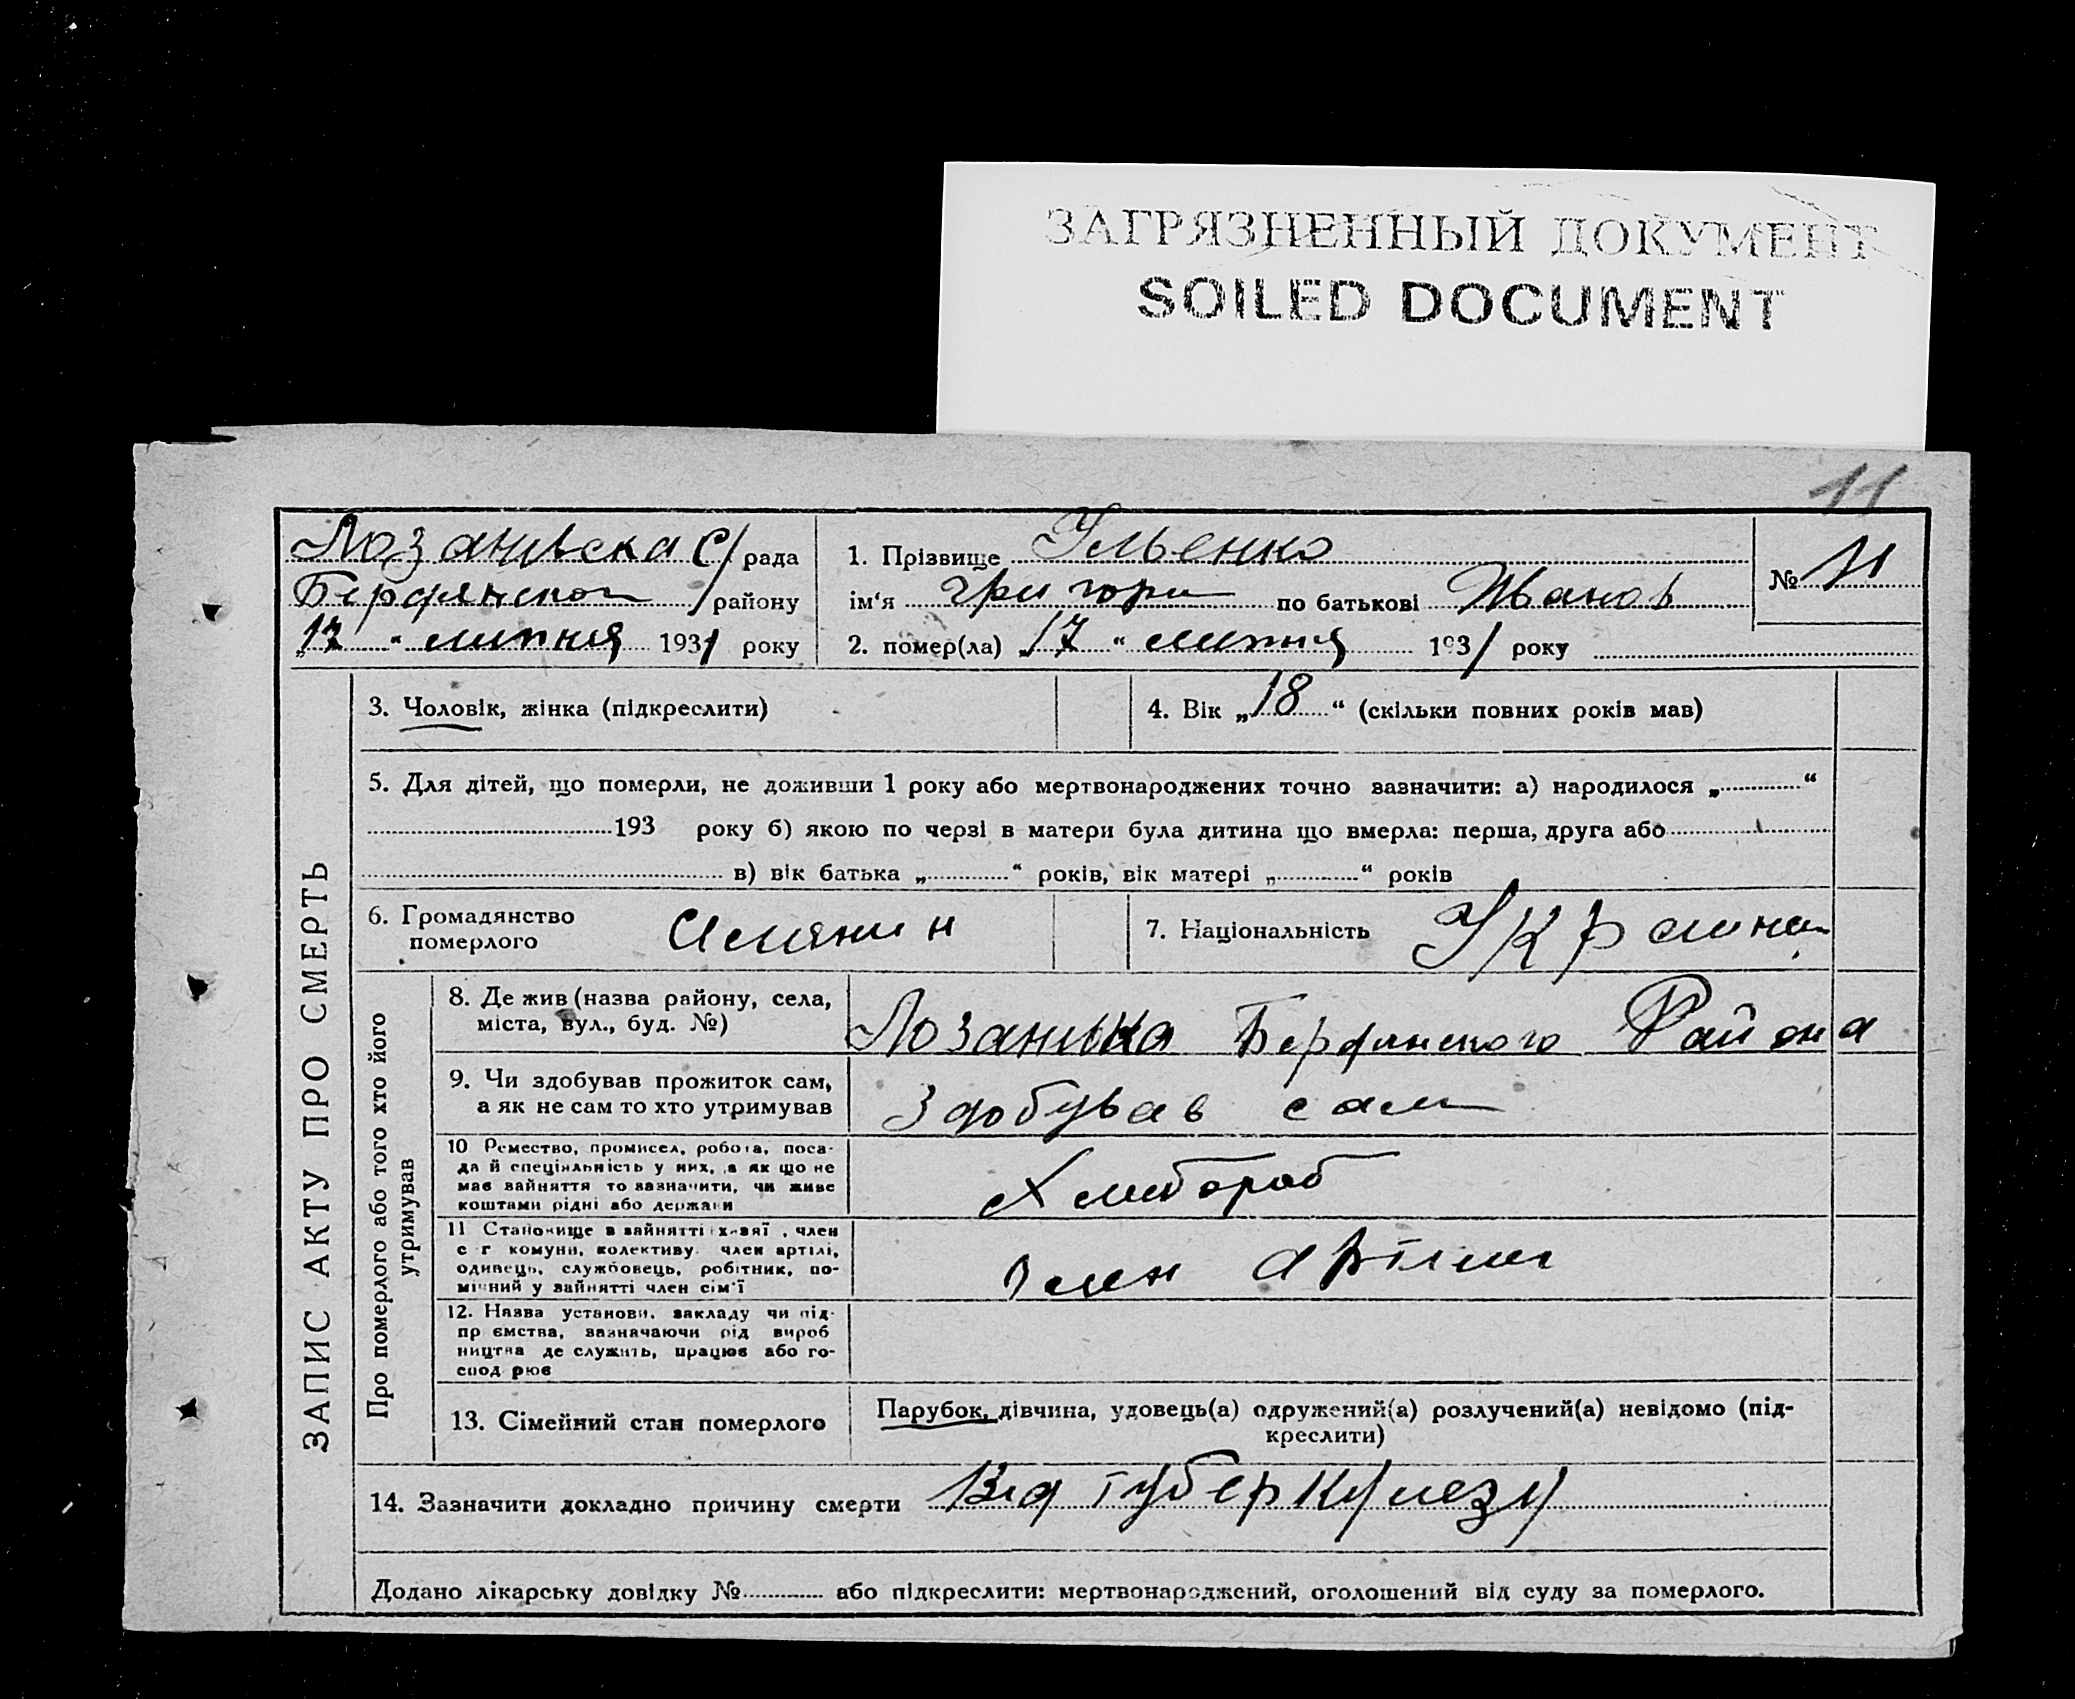 ЗАГРЯЗНЕННЫЙ ДОКУМЕНТ
SOILED DOCUMENT
11
Лозанивска С/ рада
району
„17 “ липня 1931 року
1. Прізвище Ульенко
ім‘я Григори по батькові Иванов
2. помер(ла) „17 “ липня 1931 року
№ 11
ЗАПИС АКТУ ПРО СМЕРТЬ
3. Чоловік, жінка (підкреслити)
4. Вік „18“ (скільки повних років мав)
5. Для дітей, що померли, не доживши 1 року або мертвонароджених точно зазначити: а) народилося „ “
193 року б) якою по черзі в матери була дитина що вмерла: перша, друга або
в) вік батька „ “ років, вік матері „ “ років
6. Громадянство
померлого
7. Національність
Про померлого або того хто його
утримував
8. Де жив (назва району, села,
міста, вул., буд. №)
Лозанивка Бердянского Района
9. Чи здобував прожиток сам,
а як не сам то хто утримував
Здобував сам
10 Ремество, промисел, робота, поса-
да й спеціяльність у них, а як що не
має зайняття то зазначити, чи живе
коштами рідні або держави
Хлибороб
11 Становище в зайнятті хазяї , член
с г комуни, колективу член артілі,
одинець, службовець, робітник, по-
мічний у зайнятті член сім'ї
Член артіли
12. Назва установи, закладу чи під-
пр ємства, зазначаючи рід вироб
ництва де служить, працює або го-
спод рює
13. Сімейний стан померлого
Парубок, дівчина, удовець(а) одружений(а) розлучений(а) невідомо (під-
креслити)
14. Зазначити докладно причину смерти Вид туберкулезу
Додано лікарську довідку № або підкреслити: мертвонароджений, оголошений від суду за померлого.